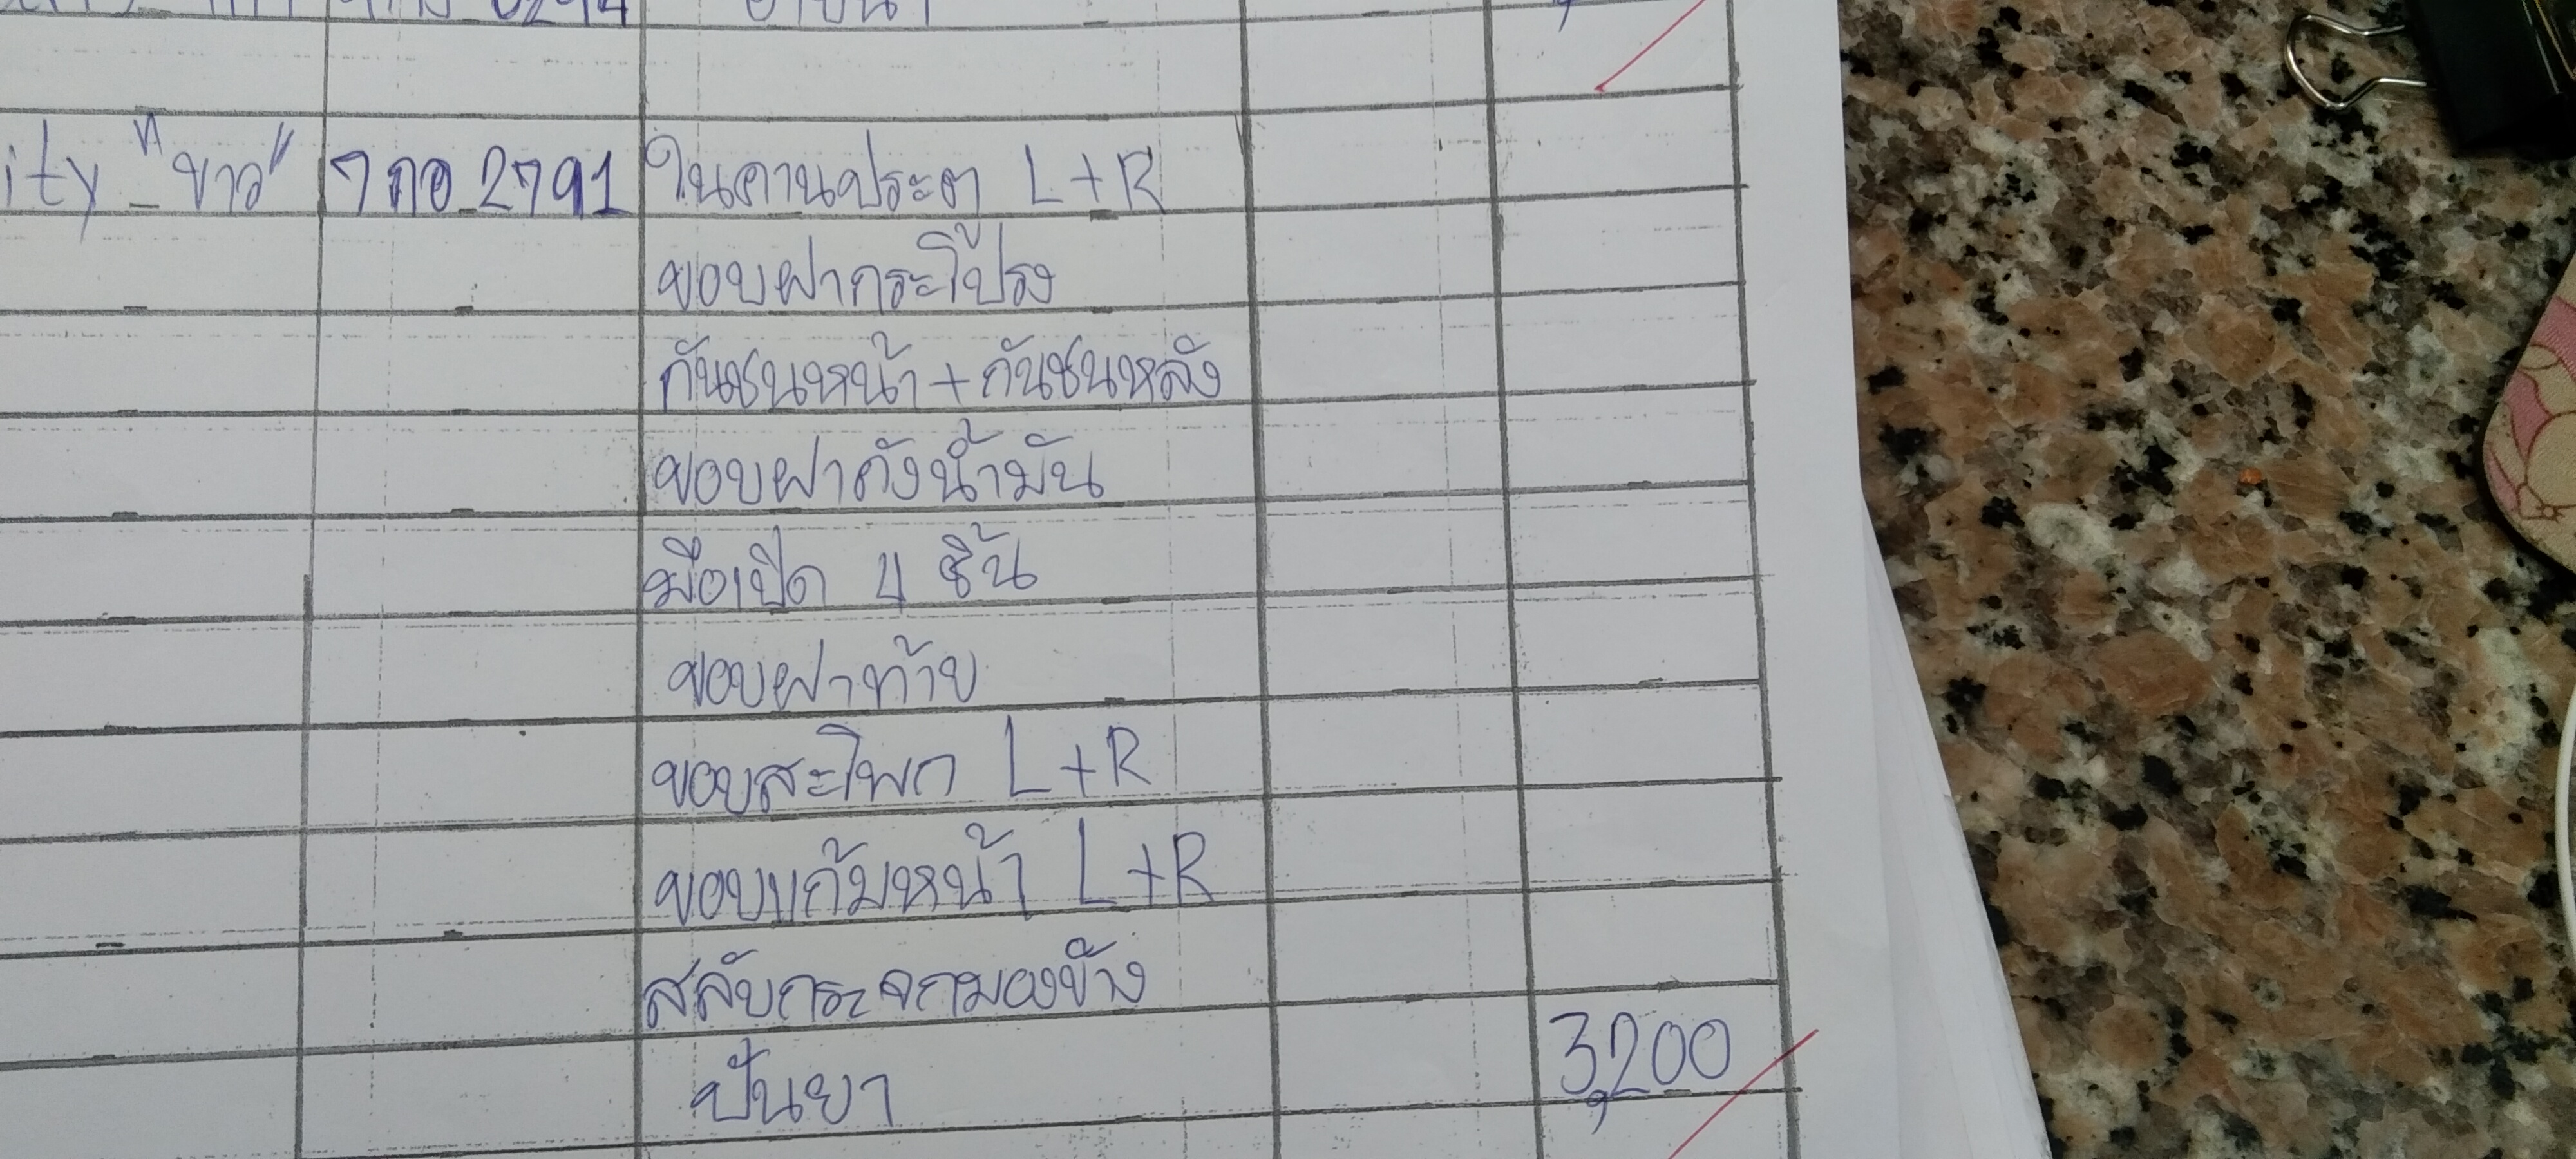 ity "ขาว" 7กอ 2791 ในคานประตู L+R
ขอบฝากระโปรง
กันชนหน้า + กันชนหลัง
ขอบฝาถังน้ำมัน
มือเปิด 4 ชิ้น
ขอบฝาท้าย
ขอบสะโพก L+R
ขอบแก้มหน้า L+R
สลับกระจกมองข้าง
ปั่นยา 3,200